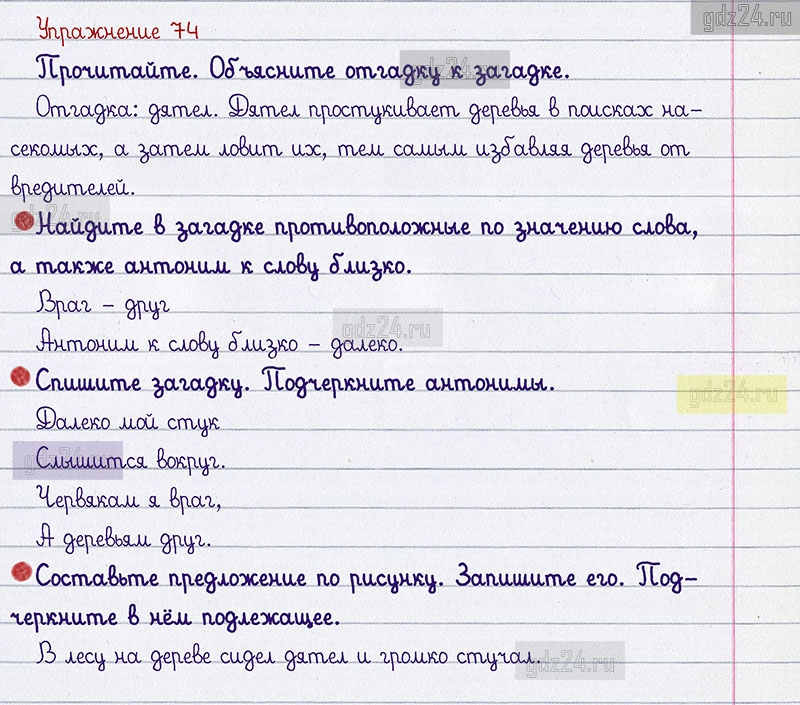 gdz24.ru
Упражнение 74
Прочитайте. Объясните отгадку к загадке.
gdz24.ru
Отгадка: дятел. Дятел простукивает деревья в поисках на-
секомых, а затем ловит их, тем самым избавляя деревья от
вредителей.
gdz24.ru
Найдите в загадке противоположные по значению слова,
а также антоним к слову близко.
Враг – друг
gdz24.ru
Антоним к слову близко – далеко.
Спишите загадку. Подчеркните антонимы.
gdz24.ru
Далеко мой стук
Слышится вокруг.
gdz24.ru
Червякам я враг,
А деревьям друг.
Составьте предложение по рисунку. Запишите его. Под-
черкните в нём подлежащее.
В лесу на дереве сидел дятел и громко стучал.
gdz24.ru